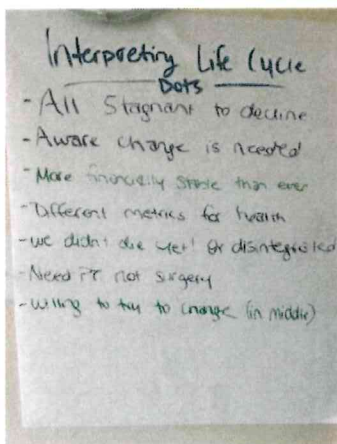 Interpreting Life Cycle
Dots
- All Stagnant to decline
- Aware change is needed
- More financially stable than ever
- Different metrics for health
- we didn't die yet! or disintegrated
- Need PT not surgery
- Willing to try to change (in middle)